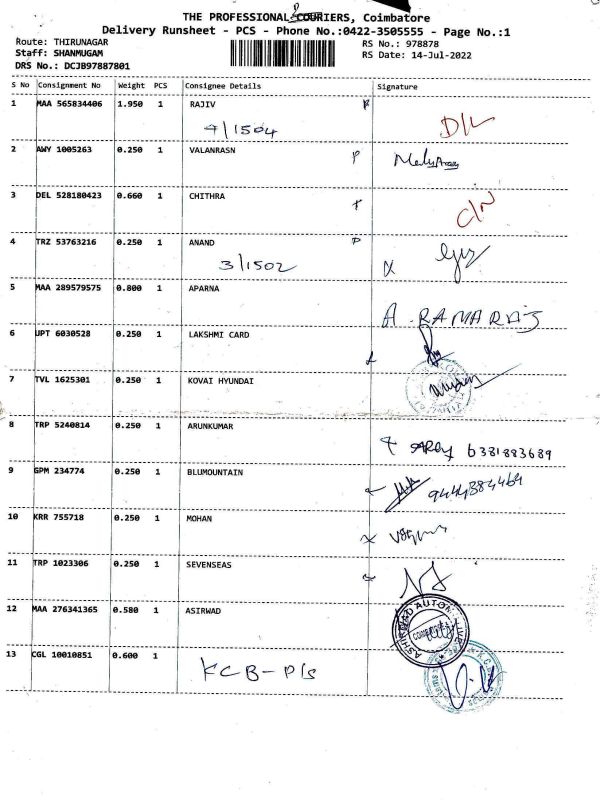 THE PROFESSIONAL COURIERS, Coimbatore
Delivery Runsheet - PCS - Phone No.:0422-3505555 - Page No.:1
Route: THIRUNAGAR RS No.: 978878
Staff: SHANMUGAM RS Date: 14-Jul-2022
DRS No.: DCJB97887801
S No Consignment No Weight PCS Consignee Details Signature
1 MAA 565834406 1.950 1 RAJIV
4/1504 D/L
2 AWY 1005263 0.250 1 VALANRASN P
3 DEL 528180423 0.660 1 CHITHRA
C/N
4 TRZ 53763216 0.250 1 ANAND P
3/1502
5 MAA 289579575 0.800 1 APARNA
A. RAMARAJ
6 UPT 6030528 0.250 1 LAKSHMI CARD
7 TVL 1625301 0.250 1 KOVAI HYUNDAI
8 TRP 5240814 0.250 1 ARUNKUMAR
6381883689
9 GPM 234774 0.250 1 BLUMOUNTAIN
9444384464
10 KRR 755718 0.250 1 MOHAN
11 TRP 1023306 0.250 1 SEVENSEAS
12 MAA 276341365 0.580 1 ASIRWAD
13 CGL 10010851 0.600 1
KCB-P/s